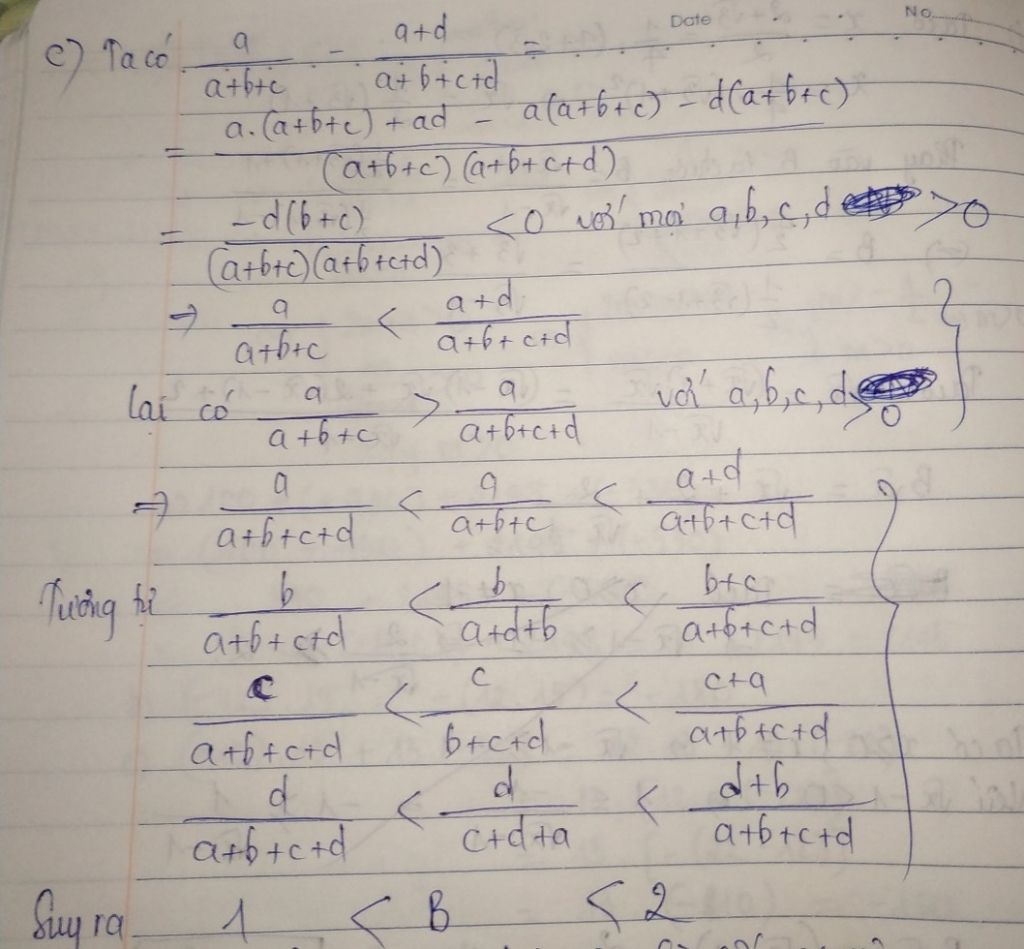 Date No
c) Ta có a/(a+b+c) - (a+d)/(a+b+c+d) =
= (a.(a+b+c) + ad - a(a+b+c) - d(a+b+c))/((a+b+c)(a+b+c+d))
= (-d(b+c))/((a+b+c)(a+b+c+d)) < 0 với mọi a,b,c,d > 0
⇒ a/(a+b+c) < (a+d)/(a+b+c+d)
lại có a/(a+b+c) > a/(a+b+c+d) với a,b,c,d > 0
⇒ a/(a+b+c+d) < a/(a+b+c) < (a+d)/(a+b+c+d)
Tương tự b/(a+b+c+d) < b/(a+d+b) < (b+c)/(a+b+c+d)
c/(a+b+c+d) < c/(b+c+d) < (c+a)/(a+b+c+d)
d/(a+b+c+d) < d/(c+d+a) < (d+b)/(a+b+c+d)
Suy ra 1 < B < 2